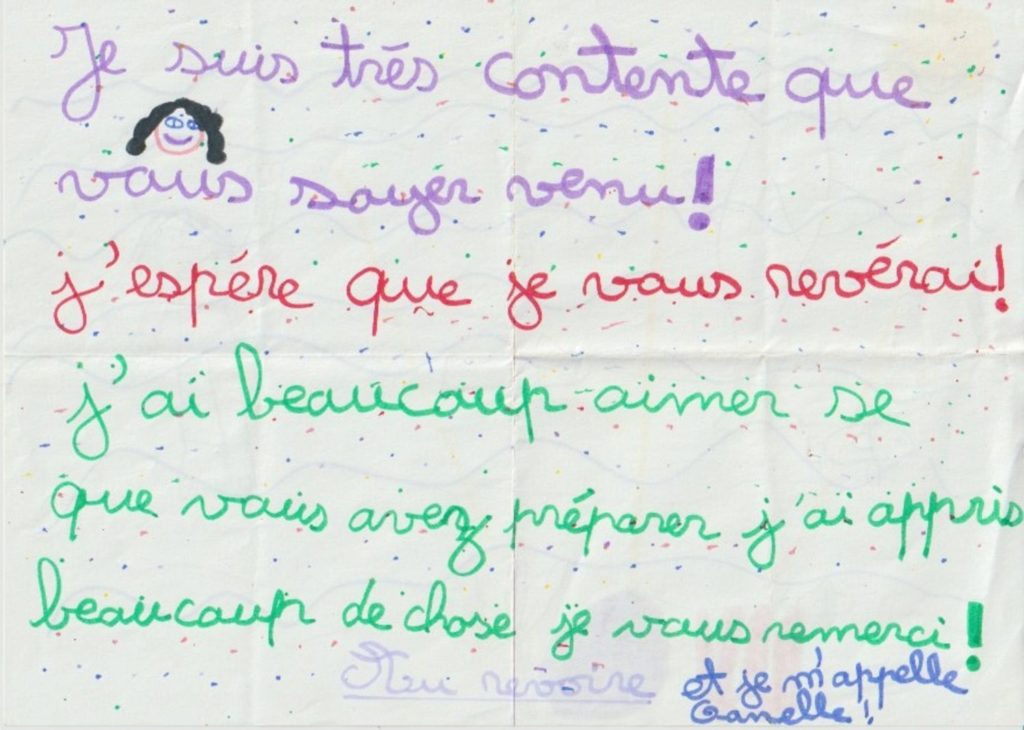 Je suis très contente que
vous soyer venu!
j'espére que je vous revérai!
j'ai beaucoup aimer se
que vous avez préparer j'ai appris
beaucoup de chose je vous remerci!
Au revoire
et je m'appelle
!